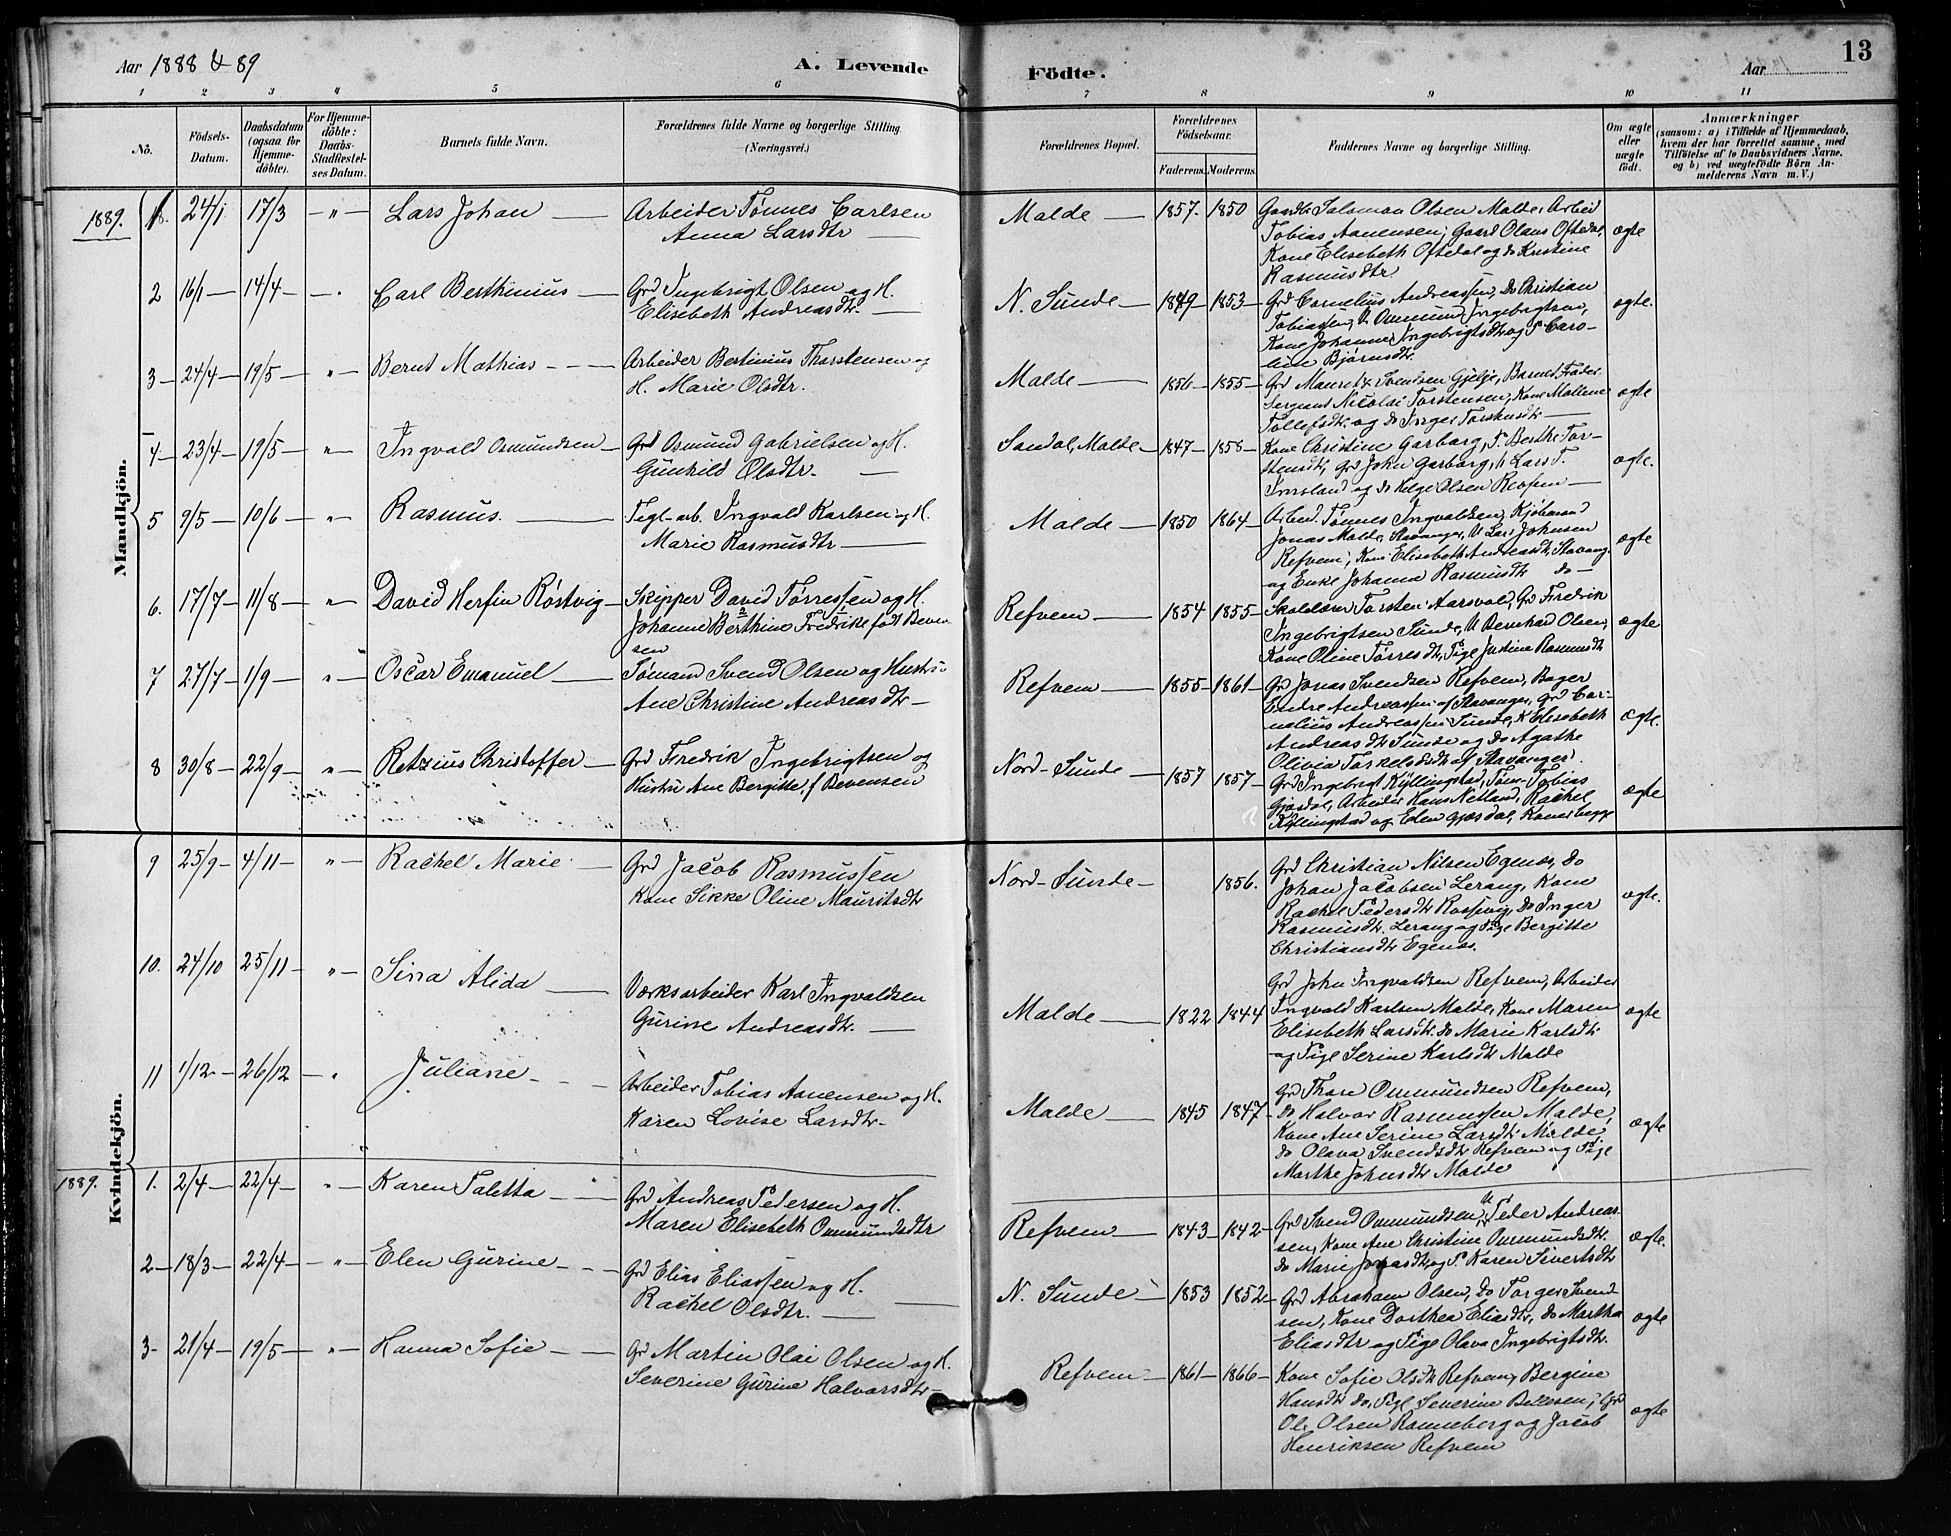 Aar 1888 & 89
A. Levende
Födte.
Aar
13
1 2 3 4 5 6 7 8 9 10 11
No.
Födsels-Datum.
Daabsdatum (ogsaa for Hjemme-döbte).
For Hjemme-döbte: Daabs-Stadfæstel-ses Datum.
Barnets fulde Navn.
Forældrenes fulde Navne og borgerlige Stilling (Næringsvei.)
Forældrenes Bopæl.
Forældrenes Födselsaar.
Faderens. Moderens.
Faddernes Navne og borgerlige Stilling.
Om ægte eller uægte födt.
Anmærkninger
(saasom: a) i Tilfælde af Hjemmedaab,
hvem der har forrettet samme, med
Tilföielse af to Daabsvidners Navne,
og b) ved uægtefödte Börn An-
melderens Navn m. V.)
Mandkjön.
1889. 1. 24/1 17/3 — " — Lars Johan — Arbeider Tønnes Carlsen
Anna Larsdtr —
Malde — 1857. 1850 Gaardb. Salomon Olsen Malde, Arbeid
Tobias Aanensen, Gaard Olaus Oftedal,
Kone Elisebeth Oftedal og do Kristine
Rasmusdtr ægte
2 16/1 — 14/4 — Carl Berthinius — Grd Ingebrigt Olsen og H.
Elisebeth Andreasdtr. —
N. Sunde — 1849 — 1853 — Grd Cornelius Andreassen, Do Christian
Tobiassen, U Ommund Ingebrigtsen,
Kone Johanne Ingebrigtsdtr og P Caro-
line Bjørnsdtr. ægte.
3 — 24/4 — 19/5 — " — Bernt Mathias — Arbeider Bertinius Thorstensen og
H. Marie Olsdtr.
Malde — 1856 — 1855 — Grd Mauritz Svendsen Gjelje, Barnets Fader
Sergeant Nicolai Torstensen, Kone Mallene
Tollefsdtr. og do Inger Torstensdtr — ægte
4 — 23/4 — 19/5 — " — Ingvald Osmundsen — Grd Osmund Gabrielsen og H.
Gunhild Olsdtr. —
Sandal, Malde — 1847 — 1858 — Kone Christine Garborg, P. Berthe Tor-
stensdtr, Grd John Garborg, U Lars T.
og do Helge Olsen — ægte.
5 9/5 — 10/6 — " — Rasmus. — Tegl-arb. Ingvald Karlsen og H.
Marie Rasmusdtr —
Malde — 1850 1864 — Arbeid. Tønnes Ingvaldsen, Kjøbmand
Jonas Malde, Stavanger, U Lars Johnsen
Refvem, Kone Elisebeth Andreasdtr, Stavang.
og Enke Johanna Rasmusdtr do — ægte
6. 17/7 — 11/8 — " — David Herfin Röstvig — Skipper David Tørressen og H.
Johanne Berthine Fredrike født Beven
sen
Refvem — 1854 1855 — Skolelærer Torsten Aarsvold, Grd Fredrik
Ingebrigtsen Sunde, U Bernhard Olsen,
Kone Oline Tørresdtr, Pige Justine Rasmusdtr ægte
7 27/7 — 1/9 — " — Oscar Emanuel — Sømand Svend Olsen og Hustru
Ane Christine Andreasdtr —
Refvem — 1855 — 1861 — Gr Jonas Svendsen Refvem, Bager
Endre Andreassen af Stavanger, Grd Cor-
nelius Andreassen Sunde, K Elisebeth
Andreasdtr Sunde og do Agathe
Olivia Torkelsdtr af Stavanger. ægte.
8 30/8 — 22/9 — " — Retzius Christoffer — Grd Fredrik Ingebrigtsen og
Hustru Ane Bergitte, f Bevensen
Nord-Sunde — 1857 1857 Grd Ingebregt Kyllingstad, Tøm. Tobias
Gjøsdal, Arbeider Hans Netland, Rachel
Kyllingstad og Elen Gjøsdal, Koner begge ægte
Kvindekjön.
9 25/9 — 4/11 — " — Rachel Marie — Grd Jacob Rasmussen
Kone Sikke Oline Mauritsdtr
Nord-Sunde — 1856. Grd Christian Nilsen Egenæs, Do
Johan Jacobsen Lerang, Kone
Rachel Pedersdtr Rossevig, Do Inger
Rasmusdtr. Lerang og Pige Bergitte
Christiansdtr Egenæs. ægte.
10. 24/10 25/11 — " — Sina Alida — Værksarbeider Karl Ingvaldsen
Gurine Andreasdtr. —
Malde — 1822 1844 Grd John Ingvaldsen Refvem, Arbeider
Ingvald Karlsen Malde, Kone Maren
Elisebeth Larsdtr. do Marie Karlsdtr
og Pige Serine Karlsdtr Malde ægte
11 1/12 — 26/12 — " Juliane — Arbeider Tobias Aanensen og H.
Karen Lovise Larsdtr —
Malde — 1845 1847 — Grd Thore Ommundsen Refvem,
do Halvor Rasmussen Malde,
Kone Ane Serine Larsdtr Malde,
do Olava Svendsdtr Refvem og Pige
Marthe Johnsdtr Malde ægte
1889. 1. 2/4 — 22/4 — " — Karen Taletta — Grd Andreas Pedersen og H.
Maren Elisebeth Ommundsdtr
Refvem — 1843 — 1842 — Grd Svend Ommundsen, U Peder Andreas-
sen, Kone Ane Christine Ommundsdtr.
do Marie Jonasdtr og P. Karen Sivertsdtr ægte.
2 — 18/3 — 22/4 — " — Elen Gurine — Grd Elias Eliassen og H.
Rachel Olsdtr. —
N. Sunde — 1853 1852 — Grd Abraham Olsen, Do Torger Svend-
sen, Kone Dorthea Eliasdtr, do Martha
Eliasdtr og Pige Olava Ingebrigtsdtr. ægte
3 — 21/4 — 19/5 — " — Hanna Sofie — Gr Martin Olai Olsen og H.
Severine Gurine Halvorsdtr —
Refvem — 1861 — 1866 — Kone Sofie Olsdtr Refvem, Bergine
Hansdtr do, Pige Severine, Grd
Ole Olsen Ranneberg og Jacob
Henriksen Refvem ægte